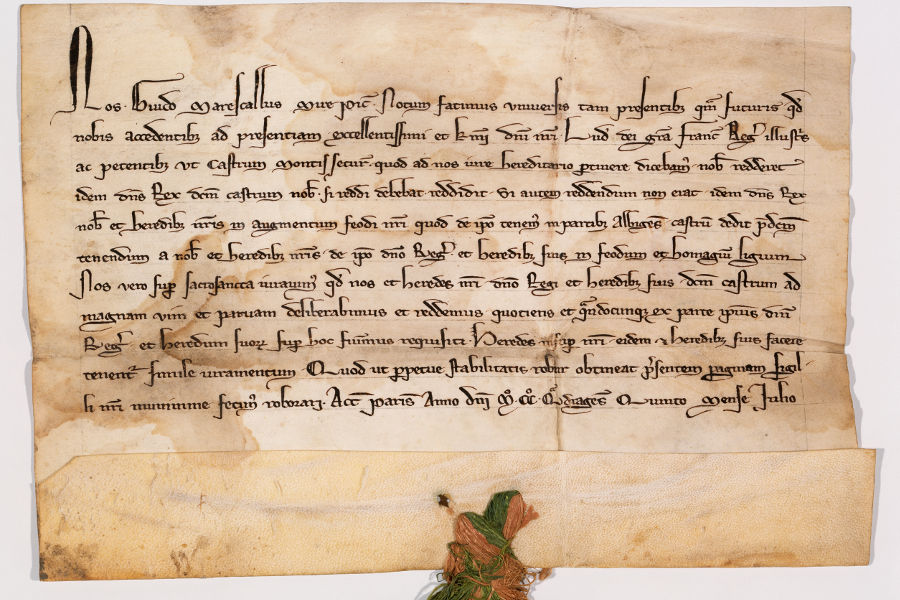 Nos. Guido Marescallus Mire poic̄. Notum facimus vniuersis tam presentibꝫ qm̄ futuris qd̄
nobis accedentibꝫ ad presentiam excellentissimi et k̄mi dn̄i nr̄i Lud dei gr̄a franc̄ Reḡ illustr̄s
ac petentibꝫ vt Castrum Montissecur̄ quod ad nos iure hereditario ꝑtinere dicebam̄ nob̄ redderet
idem dn̄s Rex dc̄m castrum nob̄. si reddi debebat reddidit. Si autem reddendum non erat idem dn̄s Rex
nob̄ et heredibꝫ nr̄is in augmentum feodi nr̄i quod de ip̄o tenem̄ in partibꝫ Albigen̄ castrū dedit p̄dc̄m
tenendum a nob̄ et heredibꝫ nr̄is. de ip̄o dn̄o Reḡ. et heredibꝫ suis in feodum et homagiū ligium
Nos vero suꝑ sacrosancta iurauim̄ qd̄ nos et heredes nr̄i dn̄o Regi et heredibꝫ suis dc̄m castrum ad
magnam vim et paruam deliberabimus et reddemus quotiens et qn̄docunqꝫ ex parte ip̄ius dn̄i
Reḡ. et heredum suoꝝ suꝑ hoc fuim̄us requisiti. Heredes nr̄i eidem et heredibꝫ suis facere
tenent̄ simile iuramentum. Quod ut ꝑpetue stabilitatis robur obtineat p̄sentem paginam sigil-
li nr̄i munimine fecim̄ roborari. Act̄ Paris̄ Anno dn̄i M̊. cc̊. Qͣdrages̄ Quinto Mense Julio